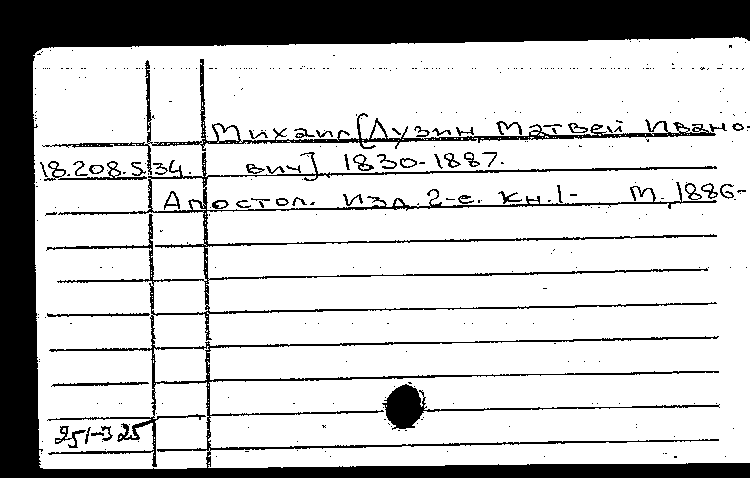 Михаил [Лузин, Матвей Ивано-
18.208.5.34. вич] 1830-1887.
Апостол. Изд. 2-е. Кн.1- М. 1886-
251-325